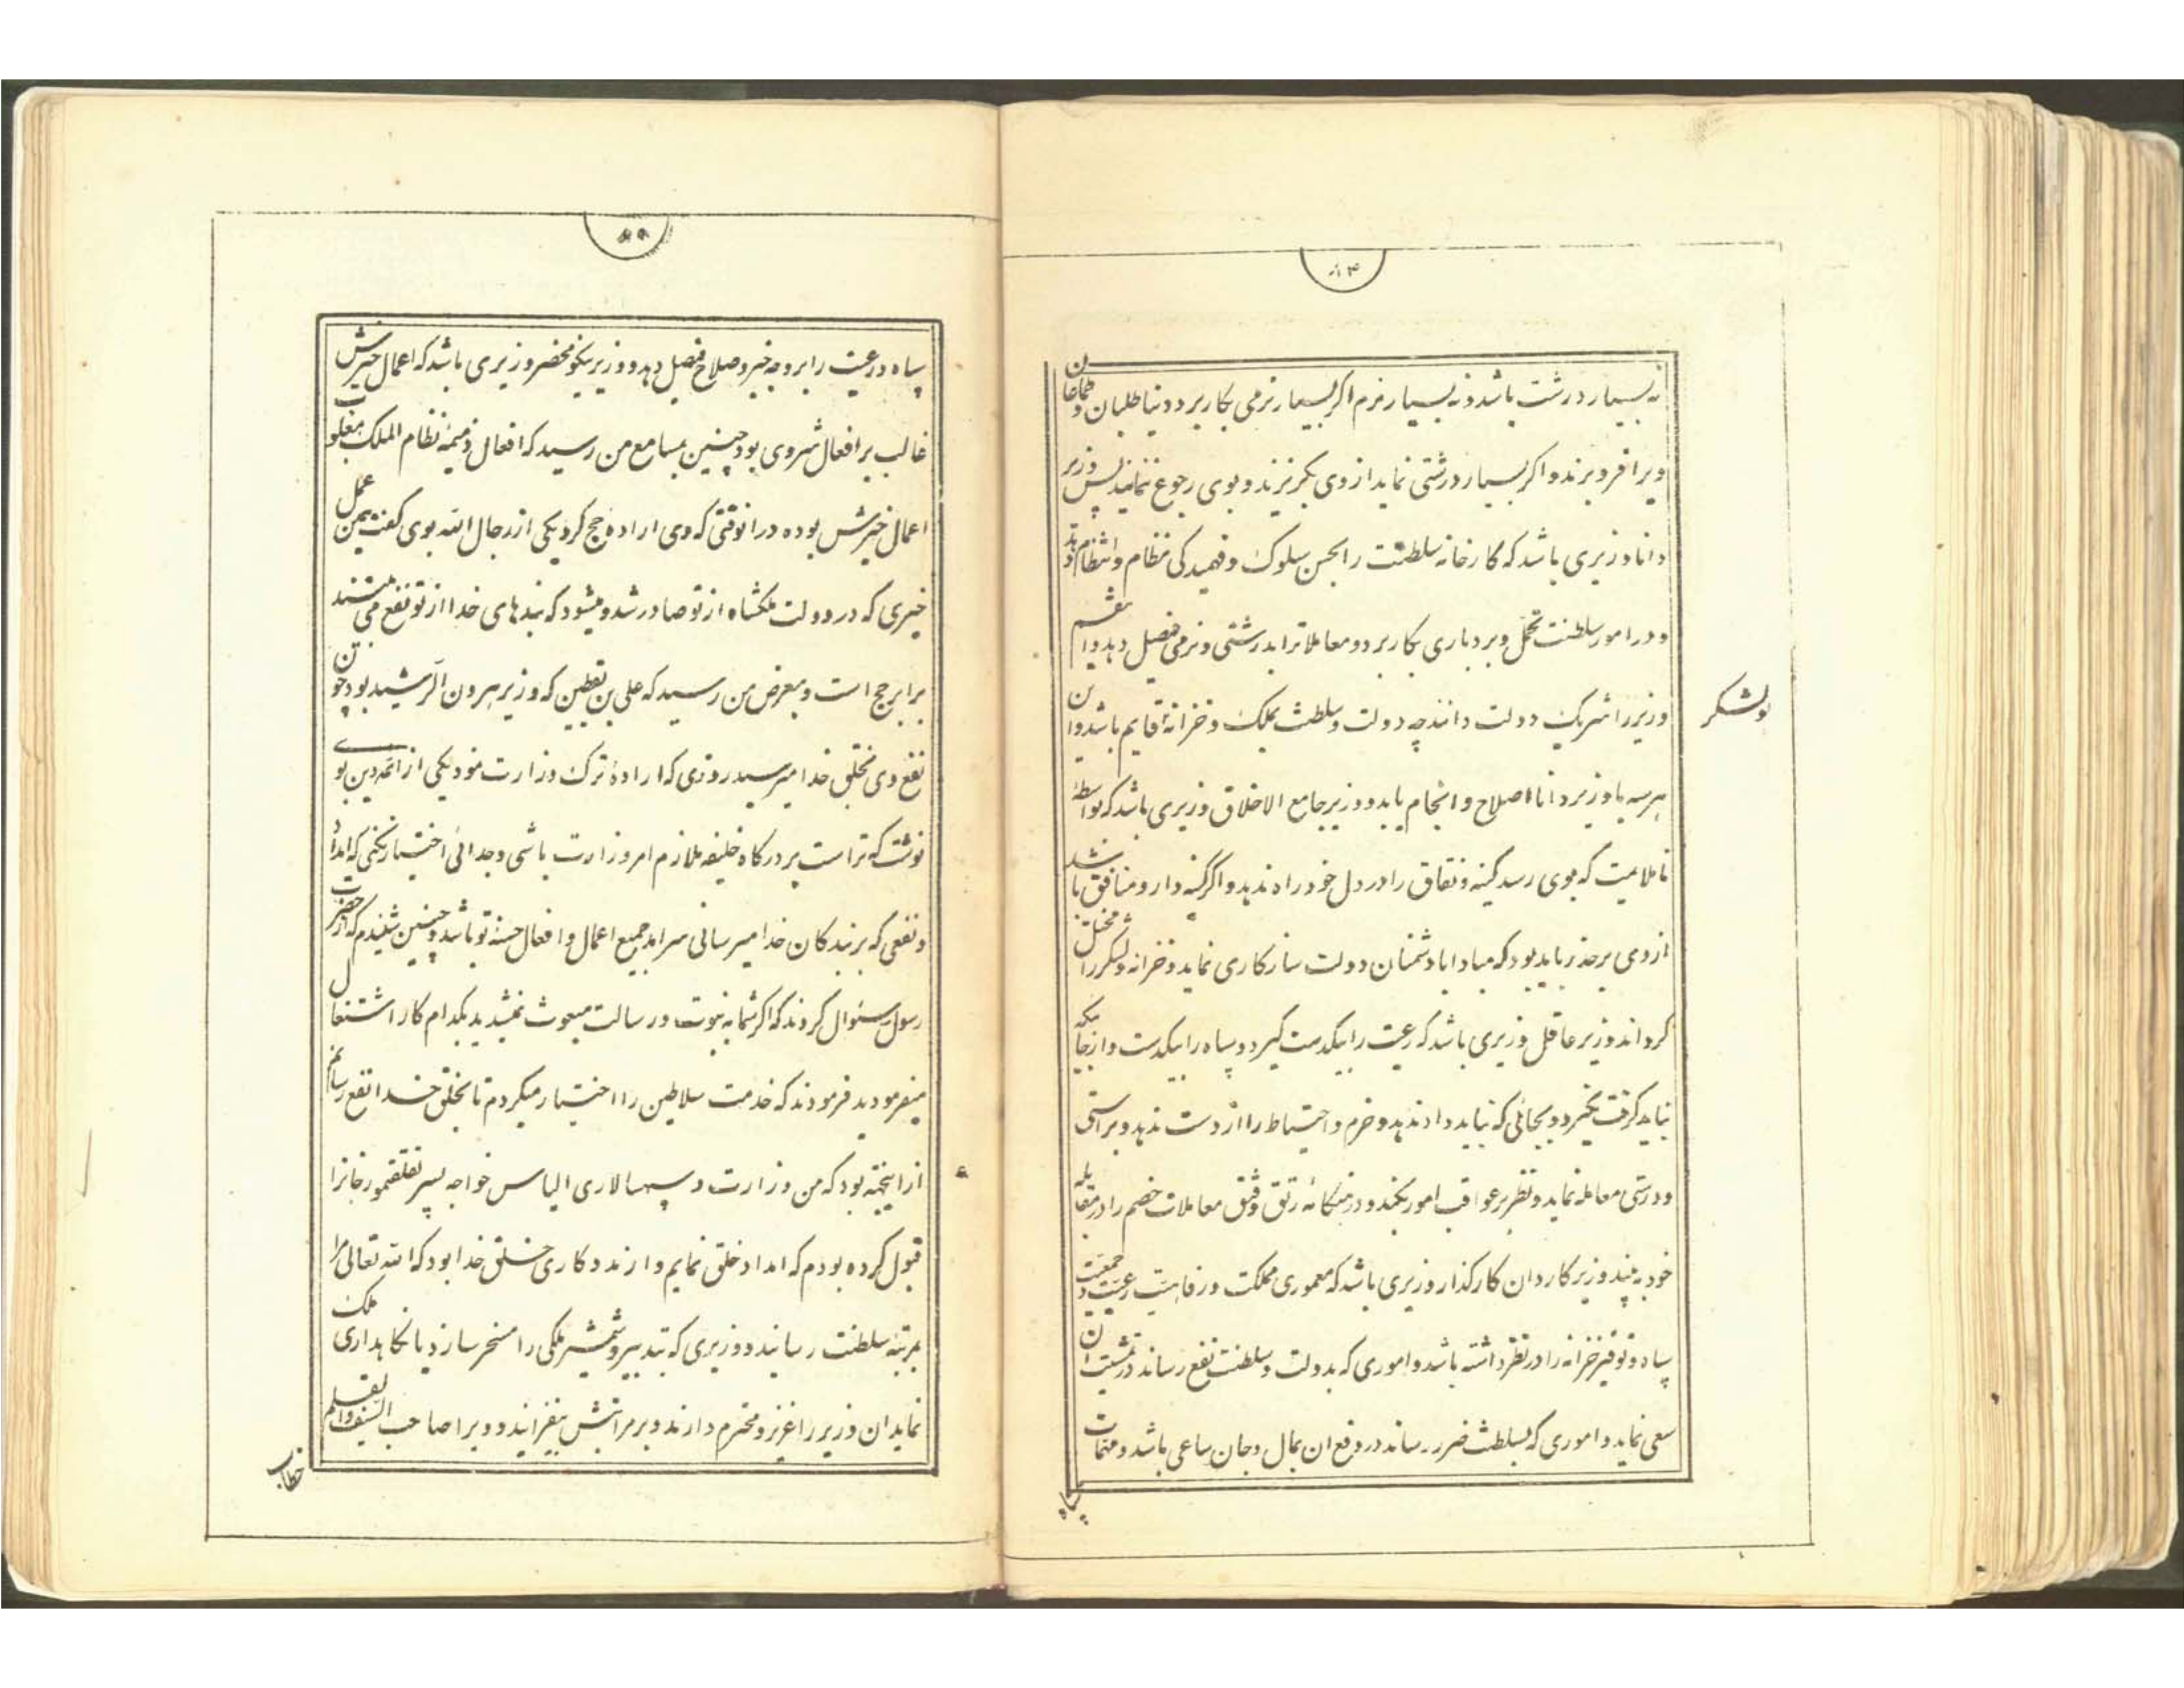 ۸۴
نه بسیار درشت باشد و نه بسیار نرم اکر بسیار نرمی بکار برد دنیا طلبان و طماعان
ویرا فرو برند و اکر بسیار درشتی نماید از وی بکریزند و بوی رجوع ننمایند پس وزیر
دانا وزیری باشد که کارخانه سلطنت را بحسن سلوک و فهمیدکی نظام و انتظام دهد
و در امور سلطنت تحمل و بردباری بکار برد و معاملاترا بدرشتی و نرمی فیصل دهد و ایشم
وزیر را شریک دولت دانند چه دولت و سلطنت بملک و خزانه قایم باشد و این
ولشکر
هر سه با وزیر دانا اصلاح و انجام یابد و وزیر جامع الاخلاق وزیری باشد که بواسطهٔ
ناملایمت که بوی رسد کینه و نفاق را در دل خود راه ندهد و اکر کینه دار و منافق باشد
از وی برحذر باید بود که مبادا با دشمنان دولت سازکاری نماید و خزانه و لشکر را مختل
کرداند وزیر عاقل وزیری باشد که رعیت را بیکدست کیرد و سپاه را بیکدست و ازجائیکه
نباید کرفت نکیرد و بجائی که نباید داد ندهد و حزم و احتیاط را از دست ندهد و براستی
و درستی معامله نماید و نظر بر عواقب امور بکند و در هنکامه رتق و فتق معاملات خصم را در مقابله
خود به بیند وزیر کاردان کارکذار وزیری باشد که معموری مملکت و رفاهیت رعیت و جمعیت
سپاه و توفیر خزانه را در نظر داشته باشد و اموری که بدولت و سلطنت نفع رساند در مشیت ان
سعی نماید و اموری که بسلطنت ضرر رساند در دفع ان بمال و جان ساعی باشد و مهمات
سپاه
سپاه و رعیت را بر وجه خیر و صلاح فیصل دهد و وزیر نیکو محضر وزیری باشد که اعمال خیرش
غالب بر افعال شر وی بود چنین بمسامع من رسید که افعال ذمیمه نظام الملک مغلوب
اعمال خیرش بوده در انوقتی که وی اراده حج کرد یکی از رجال الله بوی کفت همین عمل
خیری که در دولت ملکشاه از تو صادر شد و میشود که بندهای خدا از تو نفع می بینند
برابر حج است و بعرض من رسید که علی بن یقطین که وزیر هرون الرشید بود چون
نفع وی بخلق خدا میرسید روزی که ارادهٔ ترک وزارت نمود یکی از ائمه دین بوی
نوشت که تراست بر درکاه خلیفه ملازم امر وزارت باشی و جدائی اختیار نکنی که امداد
و نفعی که بر بندکان خدا میرسانی سرامد جمیع اعمال و افعال حسنه تو باشد و چنین شنیدم که از حضرت
رسول سئوال کردند که اکر شما به نبوت و رسالت مبعوث نمیشدید بکدام کار اشتغال
میفرمودید فرمودند که خدمت سلاطین را اختیار میکردم تا بخلق خدا نفع رسانم
از اینجهته بود که من وزارت و سپهسالاری الیاس خواجه پسر تغلقتمور خانرا
قبول کرده بودم که امداد خلق نمایم و از مددکاری خلق خدا بود که الله تعالی مرا
بمرتبه سلطنت رسانید و وزیری که بتدبیر و شمشیر ملکی را مسخر سازد یا نکاهداری ملک
نماید ان وزیر را عزیز و محترم دارند و بر مراتبش بیفزایند و ویرا صاحب السیف و القلم
خطاب